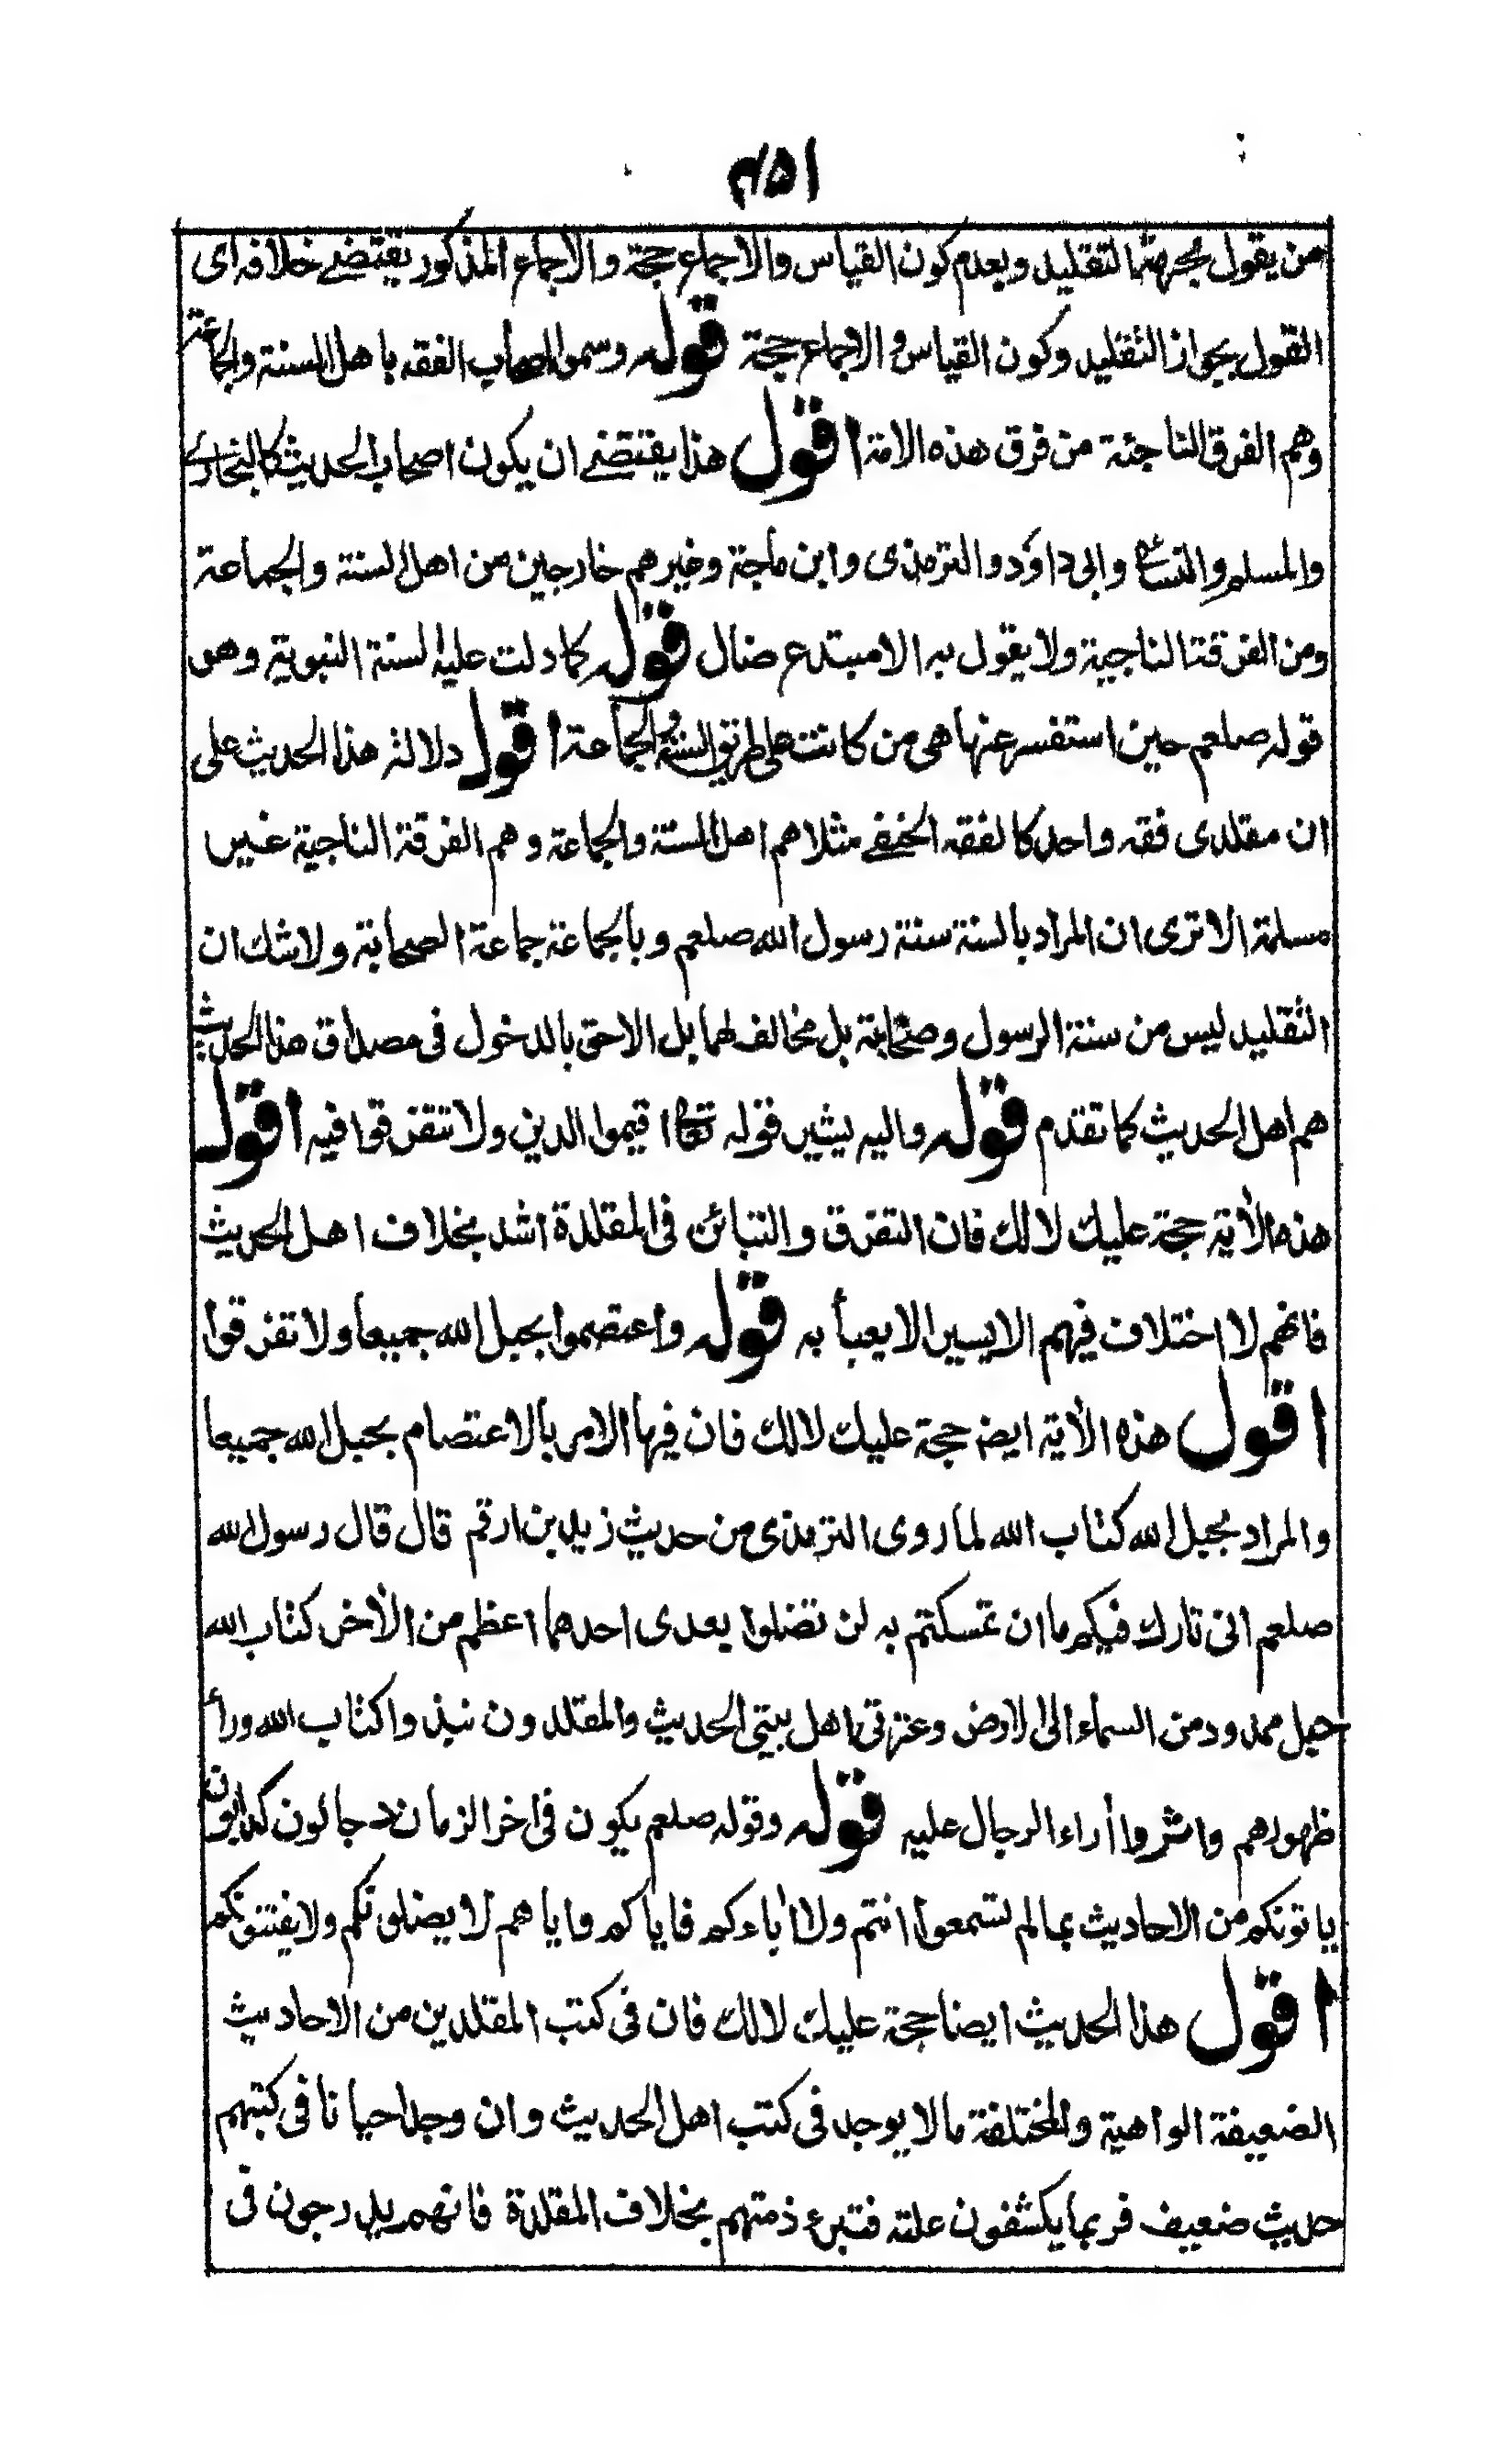 ۴۵۱
من يقول بحرمة التقليد وبعدم كون القياس والاجماع حجة والاجماع المذكور يقتضے خلافه اى
القول بجواز التقليد وكون القياس والاجماع حجة قوله وسموا اصحاب الفقه باهل السنة والجماعة
وهم الفرق الناجئة من فرق هذه الامة اقول هذا يقتضے ان يكون اصحاب الحديث كالبخارى
والمسلم والنسائے وابى داؤد والترمذى وابن ماجة وغيرهم خارجين من اهل السنة والجماعة
ومن الفرقة الناجية ولا يقول به الا مبتدع ضال قوله كما دلت عليه السنة النبوية وهو
قوله صلعم حين استفسر عنها هى من كانت على طريق السنة والجماعة اقول دلالة هذا الحديث على
ان مقلدى فقه واحد كالفقه الحنفے مثلا هم اهل السنة والجماعة وهم الفرقة الناجية غير
مسلمة الا ترى ان المراد بالسنة سنة رسول الله صلعم وبالجماعة جماعة الصحابة ولا شك ان
التقليد ليس من سنة الرسول وصحابة بل مخالف لهما بل الاحق بالدخول فى مصداق هذا الحديث
هم اهل الحديث كما تقدم قوله واليه يشير قوله تعالى اقيموا الدين ولا تتفرقوا فيه اقول
هذه الأية حجة عليك لا لك فان التفرق والتبائن فى المقلدة اشد بخلاف اهل الحديث
فانهم لا اختلاف فيهم الا يسير الا يعبأ به قوله واعتصموا بحبل الله جميعا ولا تفرقوا
اقول هذه الأية ايضا حجة عليك لا لك فان فيها الامر بالاعتصام بحبل الله جميعا
والمراد بحبل الله كتاب الله لما روى الترمذى من حديث زيد بن ارقم قال قال رسول الله
صلعم انى تارك فيكم ما ان تمسكتم به لن تضلوا بعدى احدهما اعظم من الأخر كتاب الله
حبل ممدود من السماء الى الارض وعترتى اهل بيتى الحديث والمقلدون نبذوا كتاب الله ورأ
ظهورهم واثروا أراء الرجال عليه قوله وقوله صلعم يكون فى اخر الزمان دجالون كذابون
ياتونكم من الاحاديث بما لم تسمعوا انتم ولا أباءكم فاياكم واياهم لا يضلونكم ولا يفتنونكم
اقول هذا الحديث ايضا حجة عليك لا لك فان فى كتب المقلدين من الاحاديث
الضعيفة الواهية والمختلفة ما لا يوجد فى كتب اهل الحديث وان وجد احيانا فى كتبهم
حديث ضعيف فربما يكشفون علته فتبرء ذمتهم بخلاف المقلدة فانهم يدرجون فى